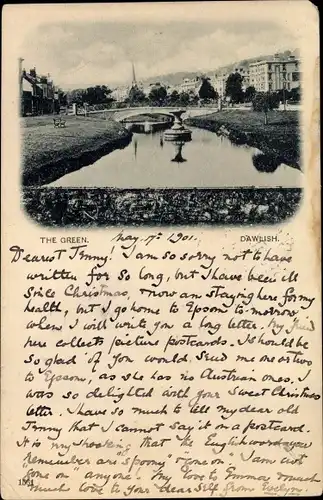 THE GREEN. May. 7th 1901. DAWLISH.
Dearest Jenny. I am so sorry not to have
written for so long, but I have been ill
since Christmas, & now am staying here for my
health, but I go home to Epsom to-morrow
when I will write you a long letter. My friend
here collects picture postcards. I should be
so glad if you would send me one or two
to Epsom, as she has no Austrian ones. I
was so delighted with your sweet Christmas
letter. I have so much to tell my dear old
Jenny that I cannot say it on a postcard.
It is my shocking that the English words you
remember are "spoony" & "gone on" I am not
"gone on" anyone. My love to Emma, much
much love to your dear self from Evelyn.